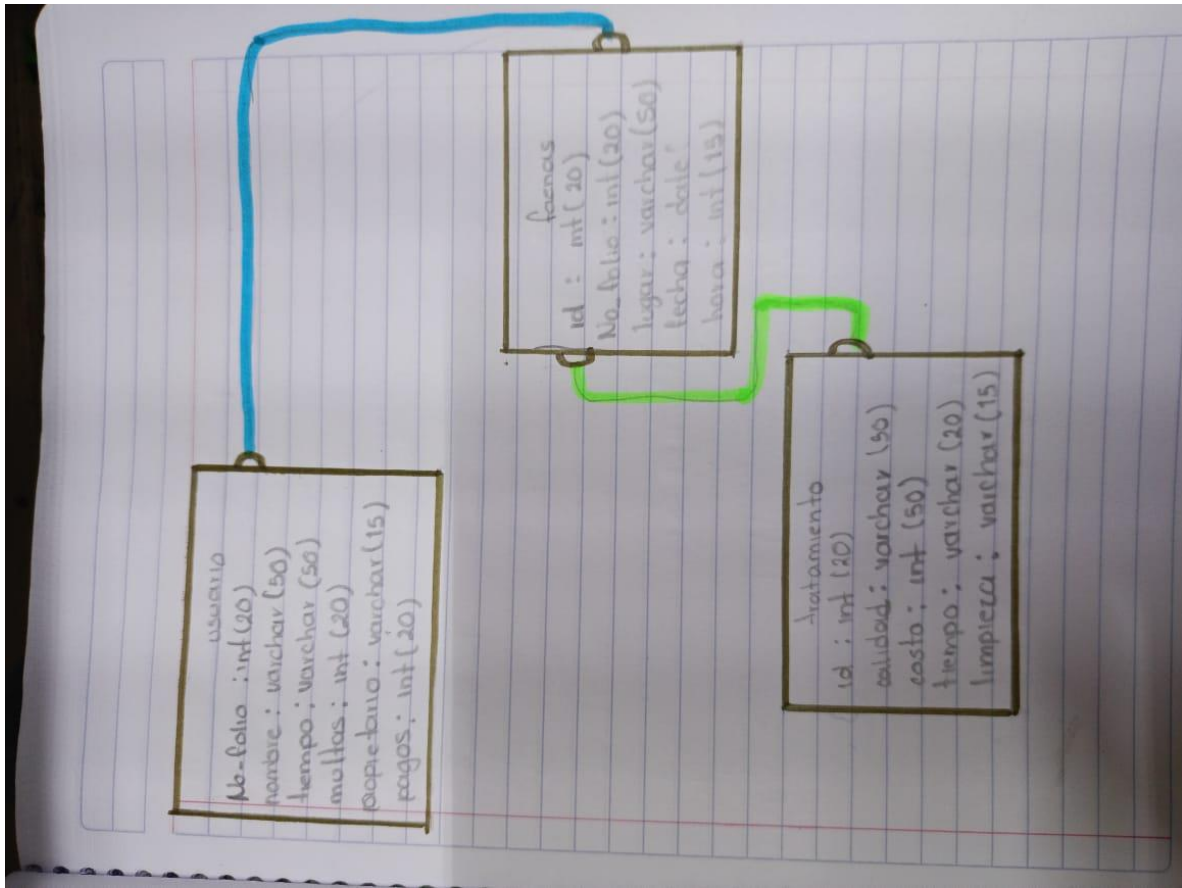 usuario
No-folio : int(20)
nombre : varchar(50)
tiempo : varchar (50)
multas : int (20)
propietario : varchar(15)
pagos : int(20)
faenas
id : int(20)
No_folio : int(20)
lugar : varchar(50)
fecha : date
hora : int(15)
tratamiento
id : int (20)
calidad : varchar (50)
costo : int (50)
tiempo : varchar (20)
limpieza : varchar (15)